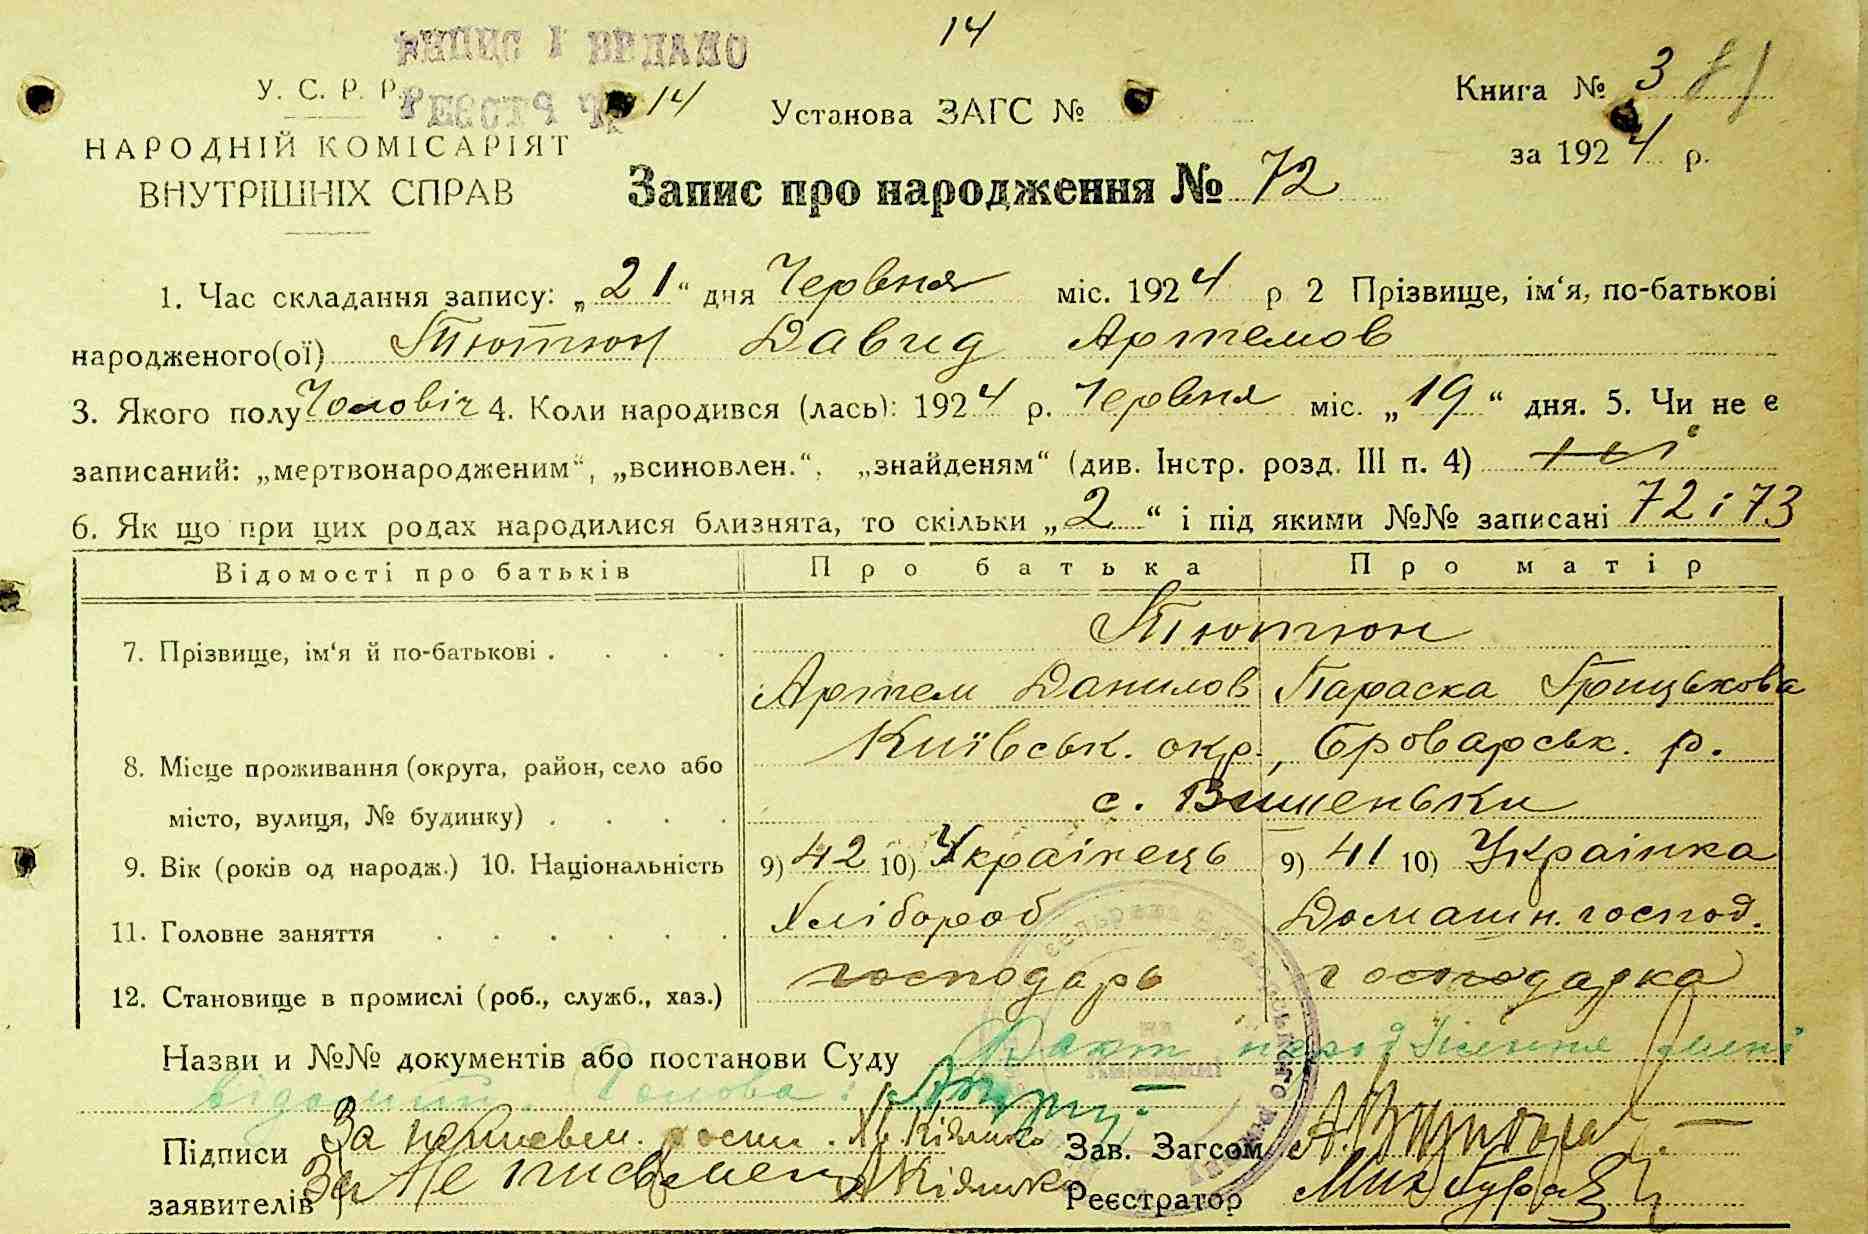 14
ВИПИС І ВИДАНО
У. С. Р. Р.
РЕЄСТР № 14
Установа ЗАГС №
Книга № 3
НАРОДНІЙ КОМІСАРІЯТ
ВНУТРІШНІХ СПРАВ
за 1924 р.
Запис про народження № 72
1. Час складання запису: „21“ дня Червня міс. 1924 р 2 Прізвище, ім‘я, по-батькові
народженого(ої) Тютюн Давид Артемов
3. Якого полу Чоловіч 4. Коли народився (лась): 1924 р. Червня міс. „19“ дня. 5. Чи не є
записаний: „мертвонародженим“, „всиновлен.“, „знайденям“ (див. Інстр. розд. III п. 4) ні
6. Як що при цих родах народилися близнята, то скільки „2“ і під якими №№ записані 72 і 73
Відомості про батьків Про батька Про матір
Тютюн
7. Прізвище, ім‘я й по-батькові . . . .
Артем Данилов Параска Грицькова
Київськ. окр., Броварськ. р.
8. Місце проживання (округа, район, село або
місто, вулиця, № будинку) . . . .
с. Вишеньки
9. Вік (років од народж.) 10. Національність 9) 42 10) Українець 9) 41 10) Українка
11. Головне заняття . . . . . . Хлібороб Домашн. господ.
12. Становище в промислі (роб., служб., хаз.) господарь господарка
Назви и №№ документів або постанови Суду Факт народження мені
відомий. Голова:
Підписи За Кіяшко Зав. Загсом
заявителів За не письмен Кіяшко Реєстратор